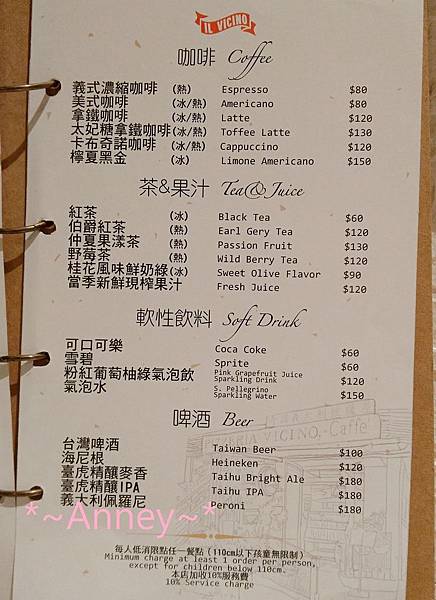 IL VICINO
咖啡 Coffee
義式濃縮咖啡 (熱) Espresso $80
美式咖啡 (冰/熱) Americano $80
拿鐵咖啡 (冰/熱) Latte $120
太妃糖拿鐵咖啡(冰/熱) Toffee Latte $130
卡布奇諾咖啡 (冰/熱) Cappuccino $120
檸夏黑金 (冰) Limone Americano $150
茶&果汁 Tea&Juice
紅茶 (冰) Black Tea $60
伯爵紅茶 (熱) Earl Gery Tea $120
仲夏果漾茶 (熱) Passion Fruit $130
野莓茶 (熱) Wild Berry Tea $120
桂花風味鮮奶綠(冰) Sweet Olive Flavor $90
當季新鮮現榨果汁 Fresh Juice $120
軟性飲料 Soft Drink
可口可樂 Coca Coke $60
雪碧 Sprite $60
粉紅葡萄柚綠氣泡飲 Pink Grapefruit Juice Sparkling Drink $120
氣泡水 S. Pellegrino Sparkling Water $150
啤酒 Beer
台灣啤酒 Taiwan Beer $100
海尼根 Heineken $120
臺虎精釀麥香 Taihu Bright Ale $180
臺虎精釀IPA Taihu IPA $180
義大利佩羅尼 Peroni $180
VICINO, Caffe'
*~Anney~*
每人低消限點任一餐點（110cm以下孩童無限制）
Minimum charge at least 1 order per person,
except for children below 110cm.
本店加收10%服務費
10% Service charge